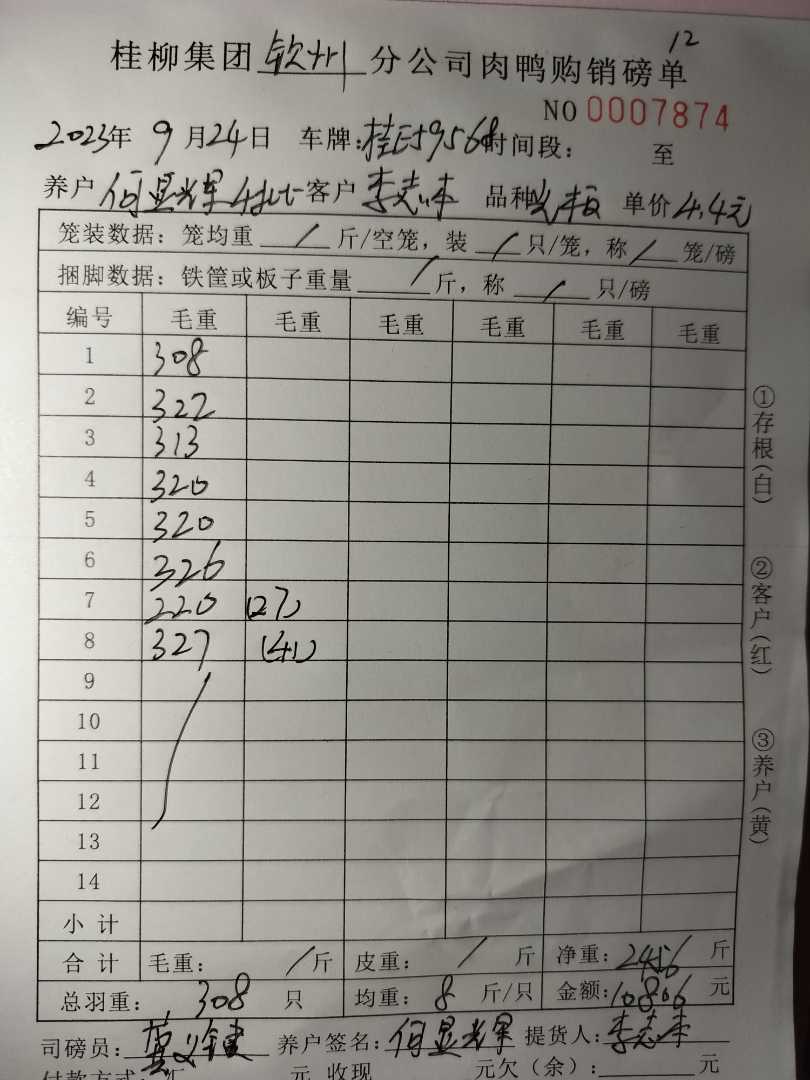 12
桂柳集团钦州分公司肉鸭购销磅单
NO 0007874
2023年 9月24日 车牌: 时间段: 至
养户 何显辉 客户 李志 品种 单价 4.4元
笼装数据: 笼均重 / 斤/空笼, 装 / 只/笼, 称 / 笼/磅
捆脚数据: 铁筐或板子重量 / 斤, 称 / 只/磅
编号 毛重 毛重 毛重 毛重 毛重 毛重
1 308
2 322
3 313
4 320
5 320
6 326
7 220 (27)
8 327 (41)
9
10
11
12
13
14
小计
合计 毛重: / 斤 皮重: / 斤 净重: 2456 斤
总羽重: 308 只 均重: 8 斤/只 金额: 10806 元
司磅员: 养户签名: 何显辉 提货人: 李志
付款方式: 汇 元 收现 元欠(余): 元
①存根(白)
②客户(红)
③养户(黄)